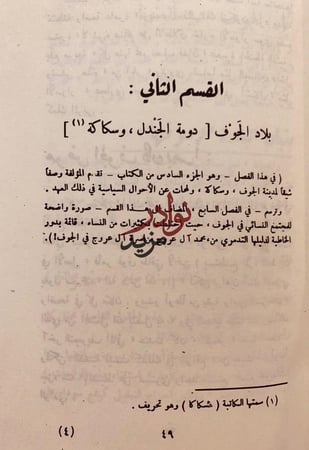 القسم الثاني :
بلاد الجوف [ دومة الجندل ، وسكاكة (١) ]
( في هذا الفصل - وهو الجزء السادس من الكتاب - تقدم المؤلفة وصفاً
شيقاً لمدينة الجوف ، وسكاكة ، ولمحات عن الأحوال السياسية في ذلك العهد .
وترسم - في الفصل السابع ، هذا القسم - صورة واضحة
للمجتمع النسائي في الجوف ، حيث بكثيرات من النساء ، قائمة بدور
الخاطبة لدليلها التدمري من محمد آل عروج آل عروج في الجوف !) .
نوادر
مزيد
(١) سمتها الكاتبة ( شسكاكا ) وهو تحريف .
٤٩
(٤)